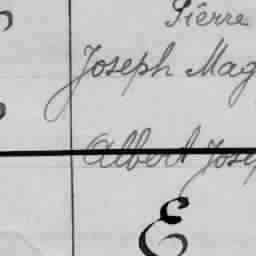 Pierre
Joseph Mag
Albert Jose
E